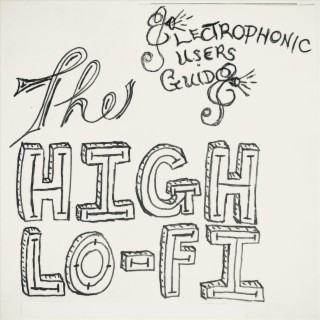 ELECTROPHONIC
USERS
GUIDE
The
HIGH
LO-FI